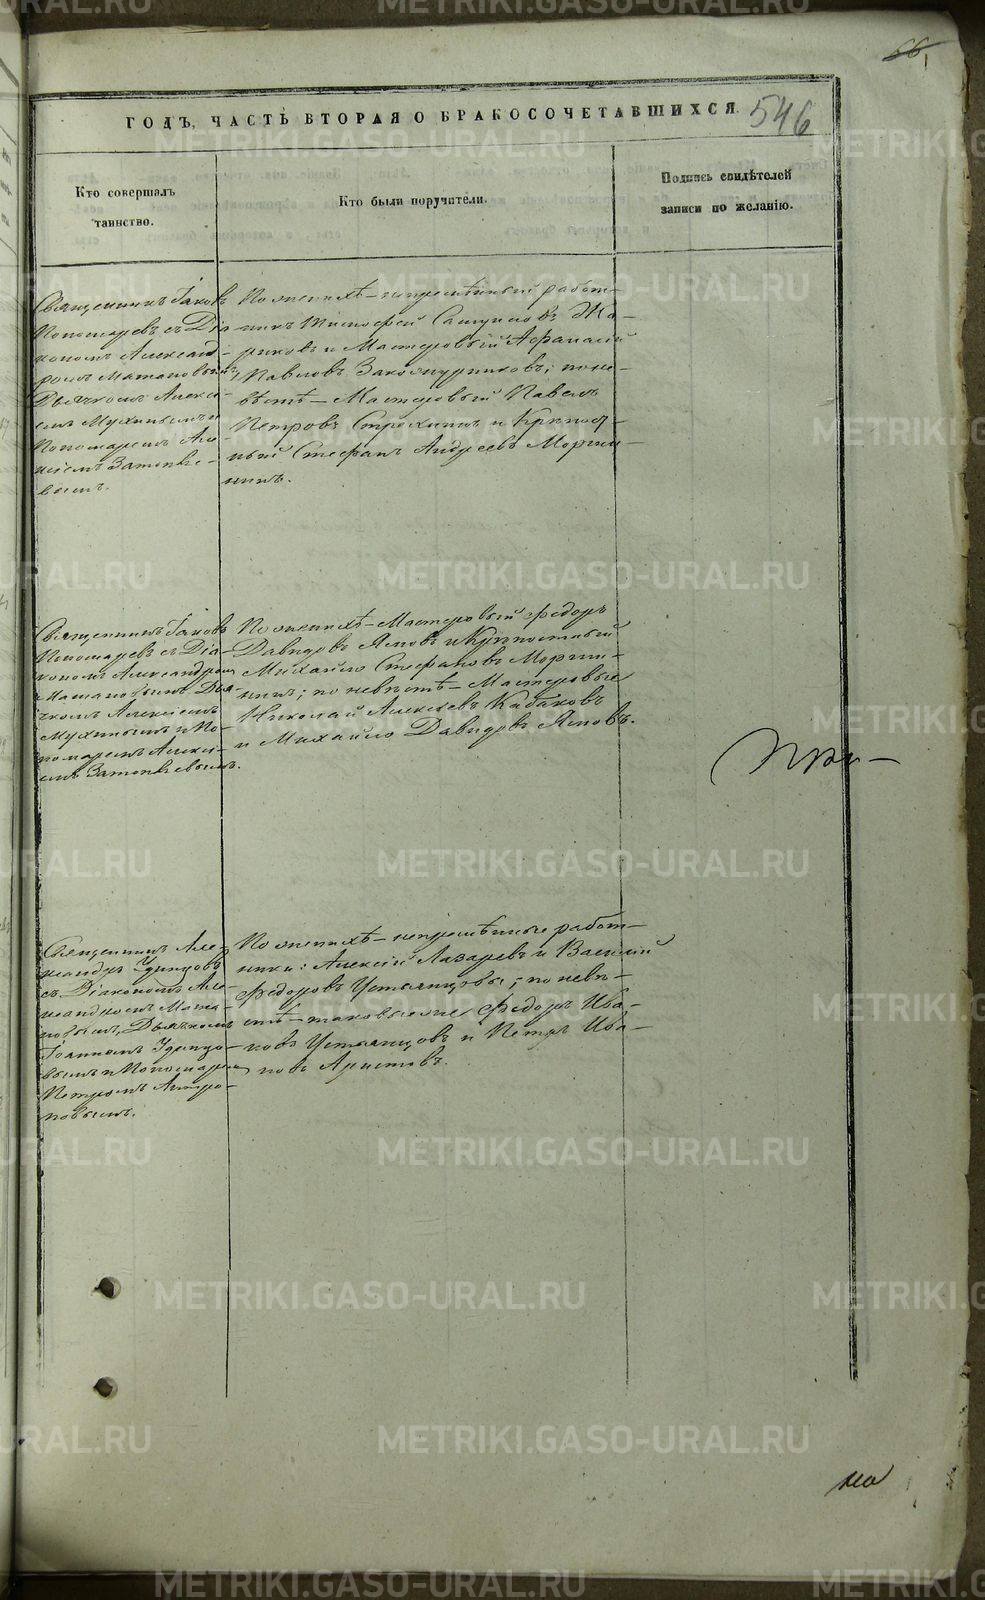 66
ГОДЪ, ЧАСТЬ ВТОРАЯ О БРАКОСОЧЕТАВШИХСЯ.
546
Кто совершалъ
таинство.
Кто были поручители.
Подпись свидѣтелей
записи по желанію.
Священникъ Іаковъ
Пономаревъ съ Діа-
кономъ Алексан-
дромъ
Дьячкомъ Алексі-
емъ Мухинымъ и
Пономаремъ Але-
ксіемъ
вымъ.
По женихѣ – непремѣнный работ-
никъ Тимофей Самуиловъ
и Мастеровый Афанасій
Павловъ по не-
вѣстѣ – Мастеровый Павелъ
Петровъ и Крѣпост-
ный Стефанъ Андреевъ Моргин-
нинъ.
Священникъ Іаковъ
Пономаревъ съ Діа-
кономъ Александромъ
Дья-
чкомъ Алексіемъ
Мухинымъ и По-
номаремъ Алексі-
емъ
По женихѣ – Мастеровый Федоръ
Давидовъ Ясновъ и Крѣпостный
Михайло Стефановъ Моргин-
нинъ; по невѣстѣ – Мастеровые
Николай Алексѣевъ Кабаковъ
и Михайло Давидовъ Ясновъ.
При-
Священникъ Але-
ксандръ Удинцовъ
съ Діакономъ Але-
ксандромъ
Дьячкомъ
Іоанномъ Удинцо-
вымъ и Пономаремъ
Петромъ
По женихѣ – непремѣнные работ-
ники: Алексій Лазаревъ и Василій
Федоровъ Устьянцовы; по невѣ-
стѣ – таковые же Федоръ Ива-
новъ Устьянцовъ и Петръ Ива-
новъ Аристовъ.
METRIKI.GASO-URAL.RU